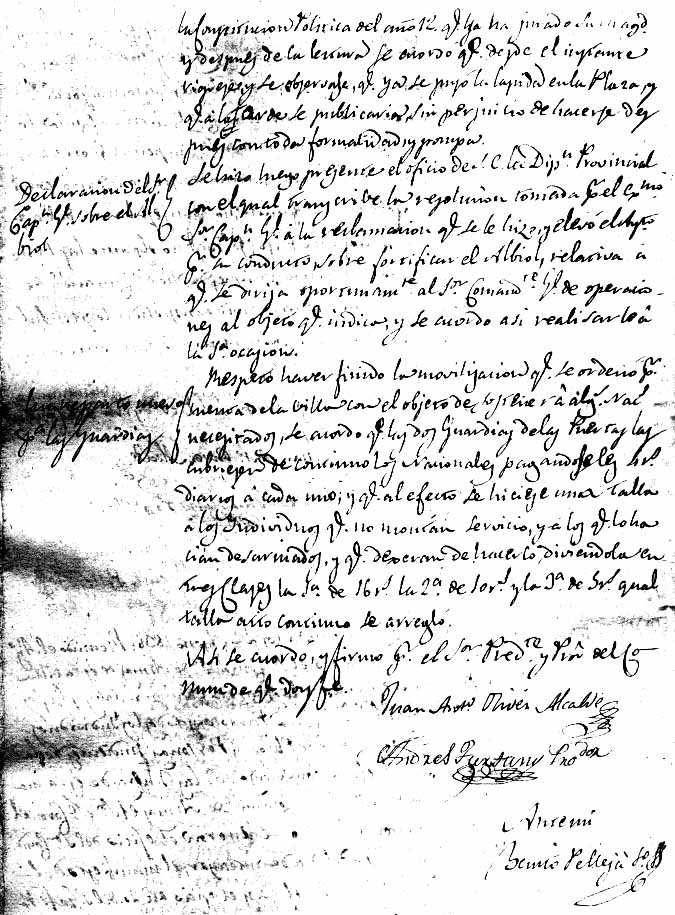 la Constitucion Politica del año 12. qe. ya ha jurado su Magd.
y despues de la lectura se acordo qe. desde el instante
rigiese y se observase, qe. ya se puso la lapida en la Plaza, y
qe. a la tarde se publicaria, sin perjuicio de hacerse des
pues con toda formalidad y pompa.
Se hizo luego presente el oficio de S. E. la Dipn. Provincial
con el qual transcribe la resolucion tomada pr. el Exmo.
Sor. Capn. Gl. à la reclamacion qe. se le hizo, y elevó el Aynto.
pr. su conducto, sobre fortificar el Albiol, relativa à
qe. se dirija oportunamte. al Sor. Comandte. Gl. de operacio-
nes al objeto qe. indica, y se acordo asi realisarlo à
la 1a. ocasion.
Declaracion del Sr.
Capn. Gl. sobre el Al
biol
Respeto haver finido la movilisacion qe. se ordenó pr.
menca de la Villa con el objeto de sostener â algs. Nacs.
necesitados, se acordo qe. las dos Guardias de las Puertas las
cubriesen de continuo los Nacionales pagandoseles 4 rs.
diarios à cada uno; y qe. al efecto se hiciese una talla
à los Individuos qe. no montan servicio, y à los qe. lo ha
cian desarmados, y qe. dexeran de hacerlo, diviendola en
tres Clases la 1a. de 16 rs. la 2a. de 10 rs. y la 3a. de 5 rs. qual
talla acto continuo se arregló.
reparto nuevo
pa. las Guardias
Asi se acordo, y firmo pr. el Sor. Predte. y Pror. del Co
mun de qe. Doy fe.
Juan Anto. Olivér Alcalde
Andres Fontany Prodor.
Antemi
Benito Pellejà So.